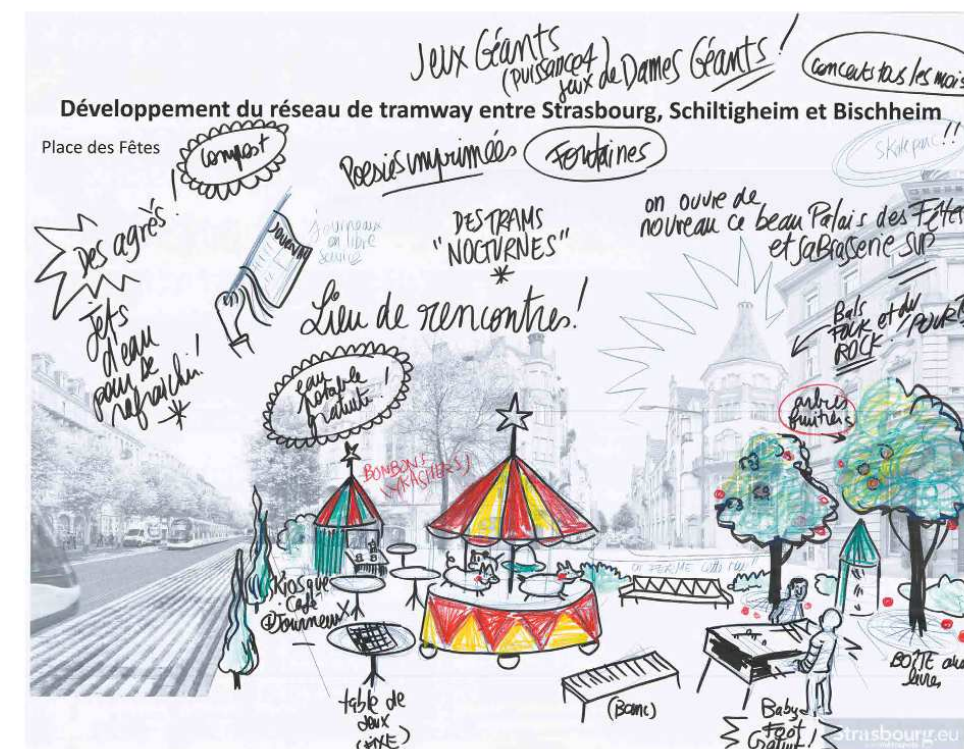 Jeux Géants
(Puissance 4
jeux de Dames Géants !
concerts tous les mois
Développement du réseau de tramway entre Strasbourg, Schiltigheim et Bischheim
Place des Fêtes
compost
Poésies imprimées
Fontaines
Skateparc !!
Des agrès !
Journal
journaux
en libre
service
DES TRAMS
"NOCTURNES"
*
on ouvre de
nouveau ce beau Palais des Fêtes
et sa Brasserie SVP
Lieu de rencontres !
Jets
d'eau
pour se
rafraichir !
*
Bals
FOLK et du
ROCK !
eau
potable
gratuite !
arbres
fruitiers
BONBONS
on FERME cette rue !
Kiosque
Café
@Journeux
table de
Jeux
(FIXE)
(Banc)
Baby
Foot
Gratuit !
BOÎTE aux
livres
Strasbourg.eu